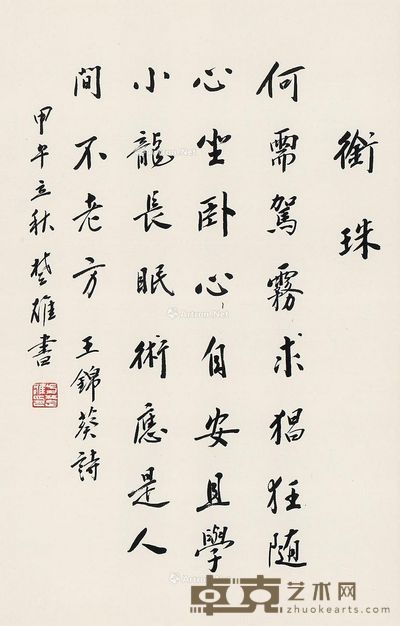 銜珠
何需駕霧求猖狂随
心坐卧心自安且學
小龍長眠術應是人
間不老方 王錦葵詩
甲午立秋楚雄書
Artron.Net
Artron.Net
Artron.Net
卓克艺术网
zhuokearts.com